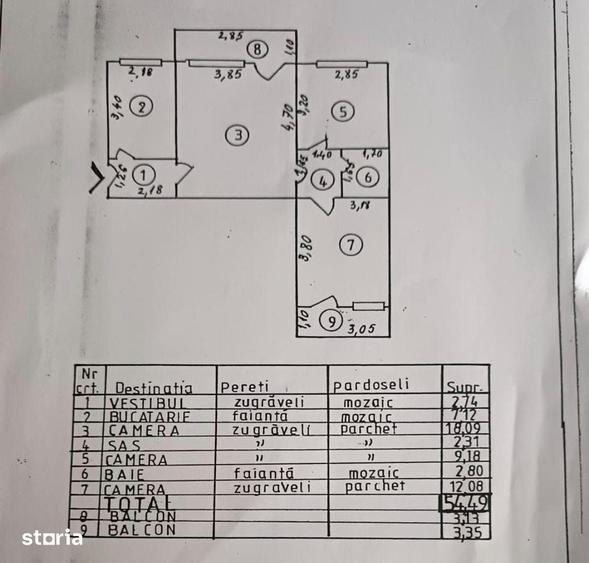 2,85
8
1,10
2,18
3,85
2,85
3,40
2
3
4,70
3,20
5
1,26
1
2,18
1,65
1,40
4
1,70
1,65
6
3,18
3,80
7
1,10
9
3,05
Nr crt. Destinatia Pereti pardoseli Supr.
1 VESTIBUL zugrăveli mozaic 2,74
2 BUCATARIE faiantă mozaic 7,12
3 CAMERA zugrăveli parchet 18,09
4 SAS " " 2,31
5 CAMERA " " 9,18
6 BAIE faiantă mozaic 2,80
7 CAMERA zugraveli parchet 12,08
TOTAL 54,49
8 BALCON 3,13
9 BALCON 3,35
storia